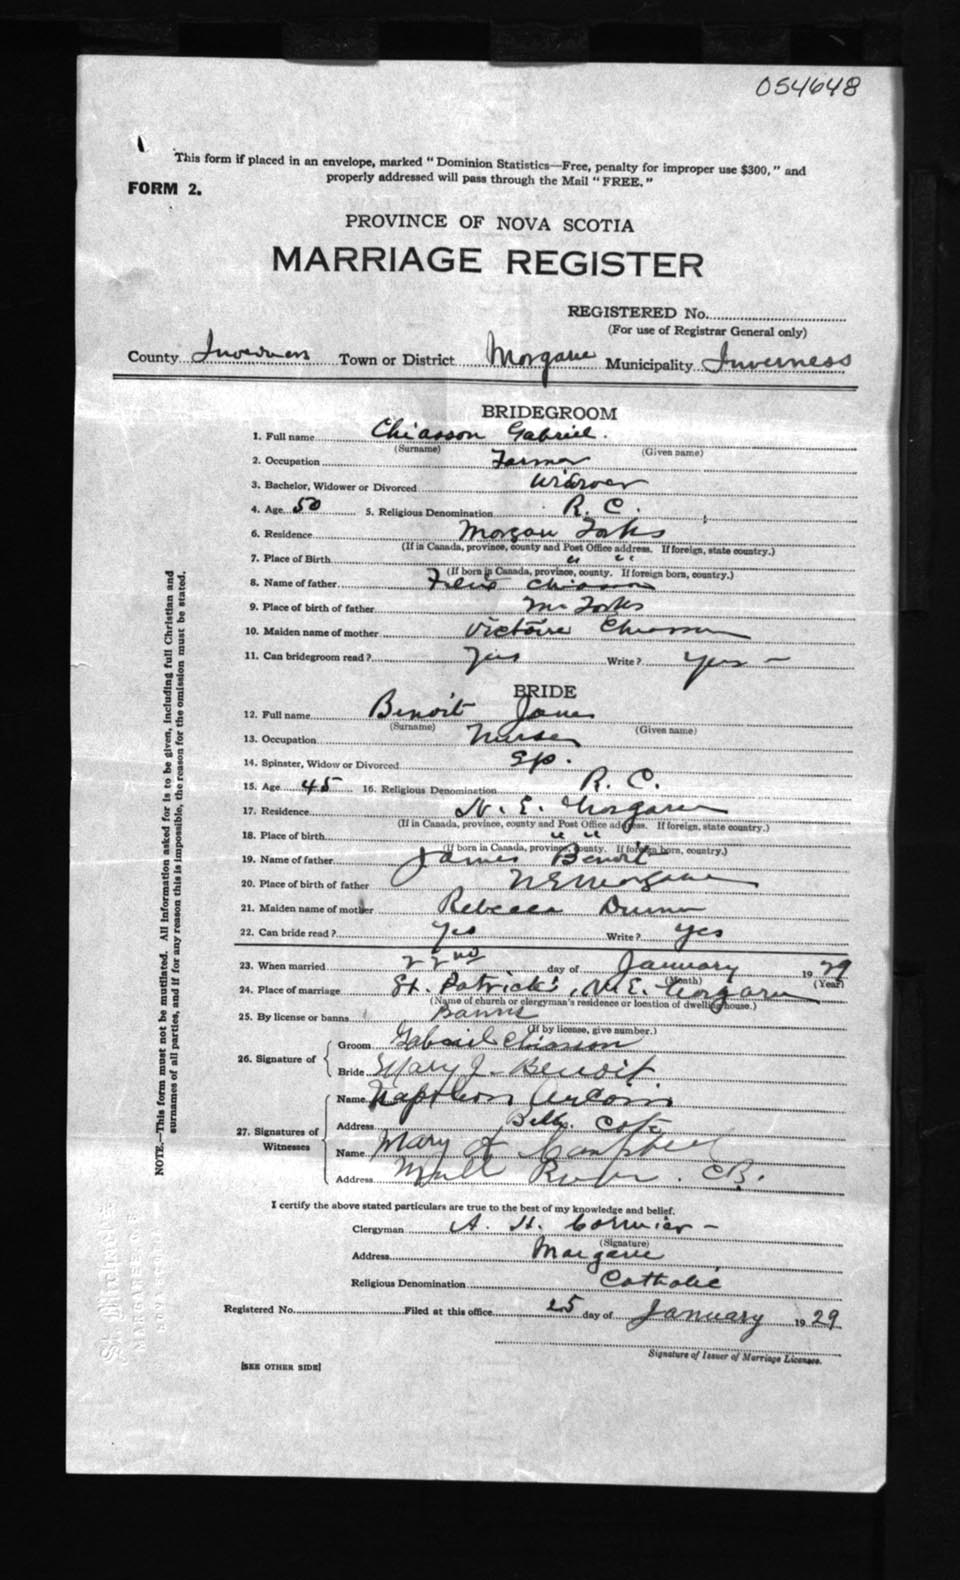 054648
This form if placed in an envelope, marked "Dominion Statistics—Free, penalty for improper use $300," and
properly addressed will pass through the Mail "FREE."
FORM 2.
PROVINCE OF NOVA SCOTIA
MARRIAGE REGISTER
REGISTERED No.
(For use of Registrar General only)
County Inverness Town or District Margaree Municipality Inverness
BRIDEGROOM
1. Full name Chiasson Gabriel.
(Surname) (Given name)
2. Occupation Farmer
3. Bachelor, Widower or Divorced Widower
4. Age 50 5. Religious Denomination R. C.
6. Residence Margaree Forks
(If in Canada, province, county and Post Office address. If foreign, state country.)
7. Place of Birth " "
(If born in Canada, province, county. If foreign born, country.)
8. Name of father Chiasson
9. Place of birth of father M Forks
10. Maiden name of mother Victoire Chiasson
11. Can bridegroom read? Yes Write? Yes –
BRIDE
12. Full name Benoit Jane
(Surname) (Given name)
13. Occupation Nurse
14. Spinster, Widow or Divorced Sp.
15. Age 45 16. Religious Denomination R. C.
17. Residence N. E. Margaree
(If in Canada, province, county and Post Office address. If foreign, state country.)
18. Place of birth " "
(If born in Canada, province, county. If foreign born, country.)
19. Name of father James Benoit
20. Place of birth of father N E Margaree
21. Maiden name of mother Rebecca
22. Can bride read? Yes Write? Yes
23. When married 22nd day of January 1929
(Month) (Year)
24. Place of marriage St. Patrick's, N. E. Margaree
(Name of church or clergyman's residence or location of dwelling house.)
25. By license or banns Banns
(If by license, give number.)
26. Signature of Groom Gabriel Chiasson
Bride Mary J. Benoit
27. Signatures of Witnesses Name Napoleon
Address Belle Cote
Name Mary Campbell
Address Mull River. C.B.
I certify the above stated particulars are true to the best of my knowledge and belief.
Clergyman A. H. Cormier –
(Signature)
Address Margaree
Religious Denomination Catholic
Registered No. Filed at this office 25 day of January 1929
Signature of Issuer of Marriage Licenses.
[SEE OTHER SIDE]
NOTE.—This form must not be mutilated. All information asked for is to be given, including full Christian and
surnames of all parties, and if for any reason this is impossible, the reason for the omission must be stated.